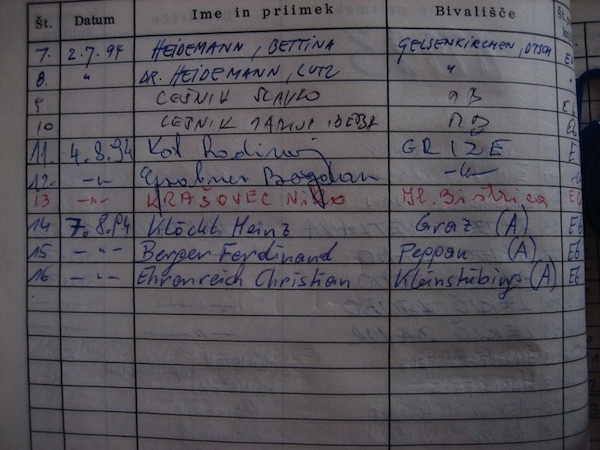 Št. Datum Ime in priimek Bivališče Št.
7. 2.7.94 HEIDEMANN, BETTINA GELSENKIRCHEN, DTSCH E6
8. " DR. HEIDEMANN, LUTZ "
9 ČEŠNIK SLAVKO
10 ČEŠNIK
11. 4.8.94 GRIŽE E
12. -"- Bogdan -"-
13 -"- KRAŠOVEC Niko Il. Bistrica E6
14 7.8.94 Klöckl Heinz Graz (A) E6
15 - " - Berger Ferdinand Peggau (A) E6
16 - " - Ehrenreich Christian Kleinstübing (A) E6